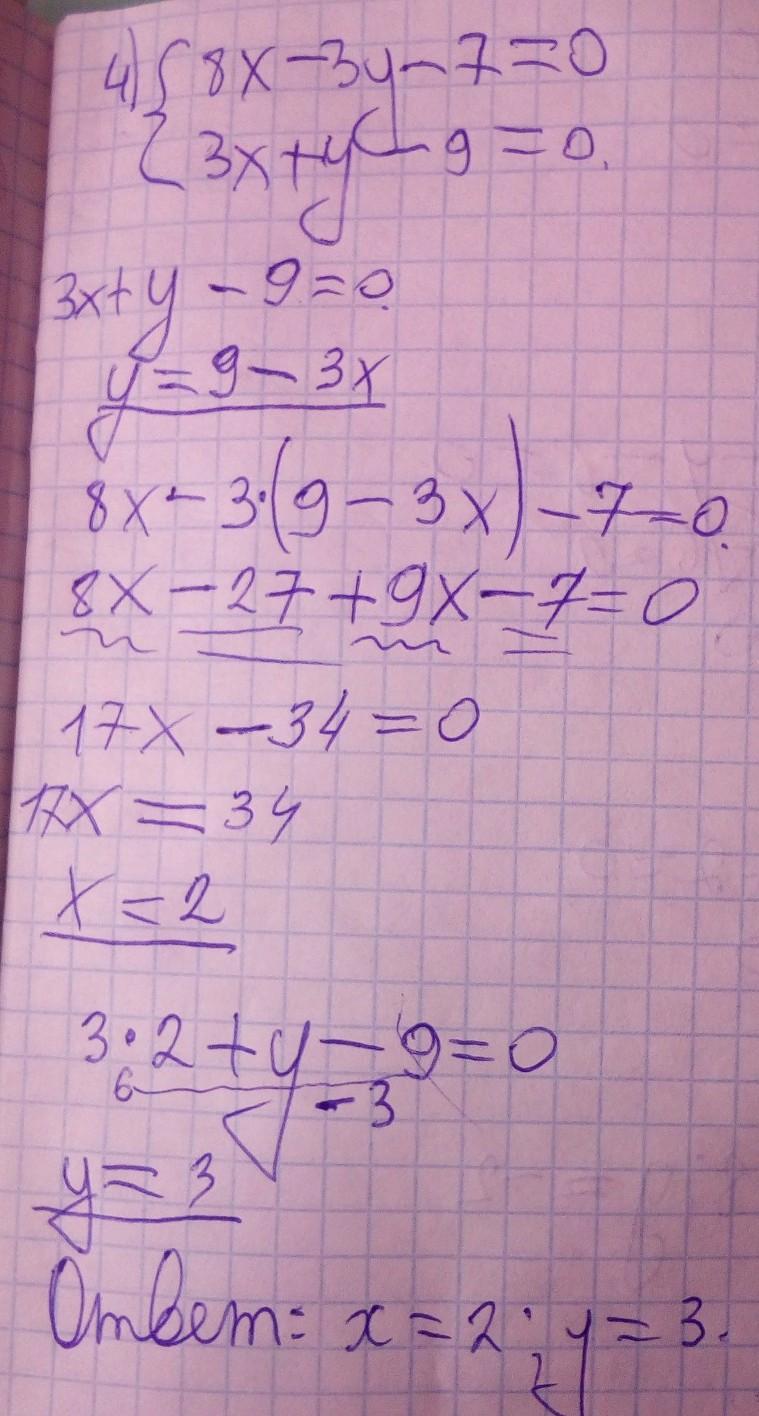 4) { 8x - 3y - 7 = 0
3x + y - 9 = 0.
3x + y - 9 = 0
y = 9 - 3x
8x - 3·(9 - 3x) - 7 = 0.
8x - 27 + 9x - 7 = 0
17x - 34 = 0
17x = 34
x = 2
3·2 + y - 9 = 0
6 -3
y = 3
Ответ: x = 2; y = 3.